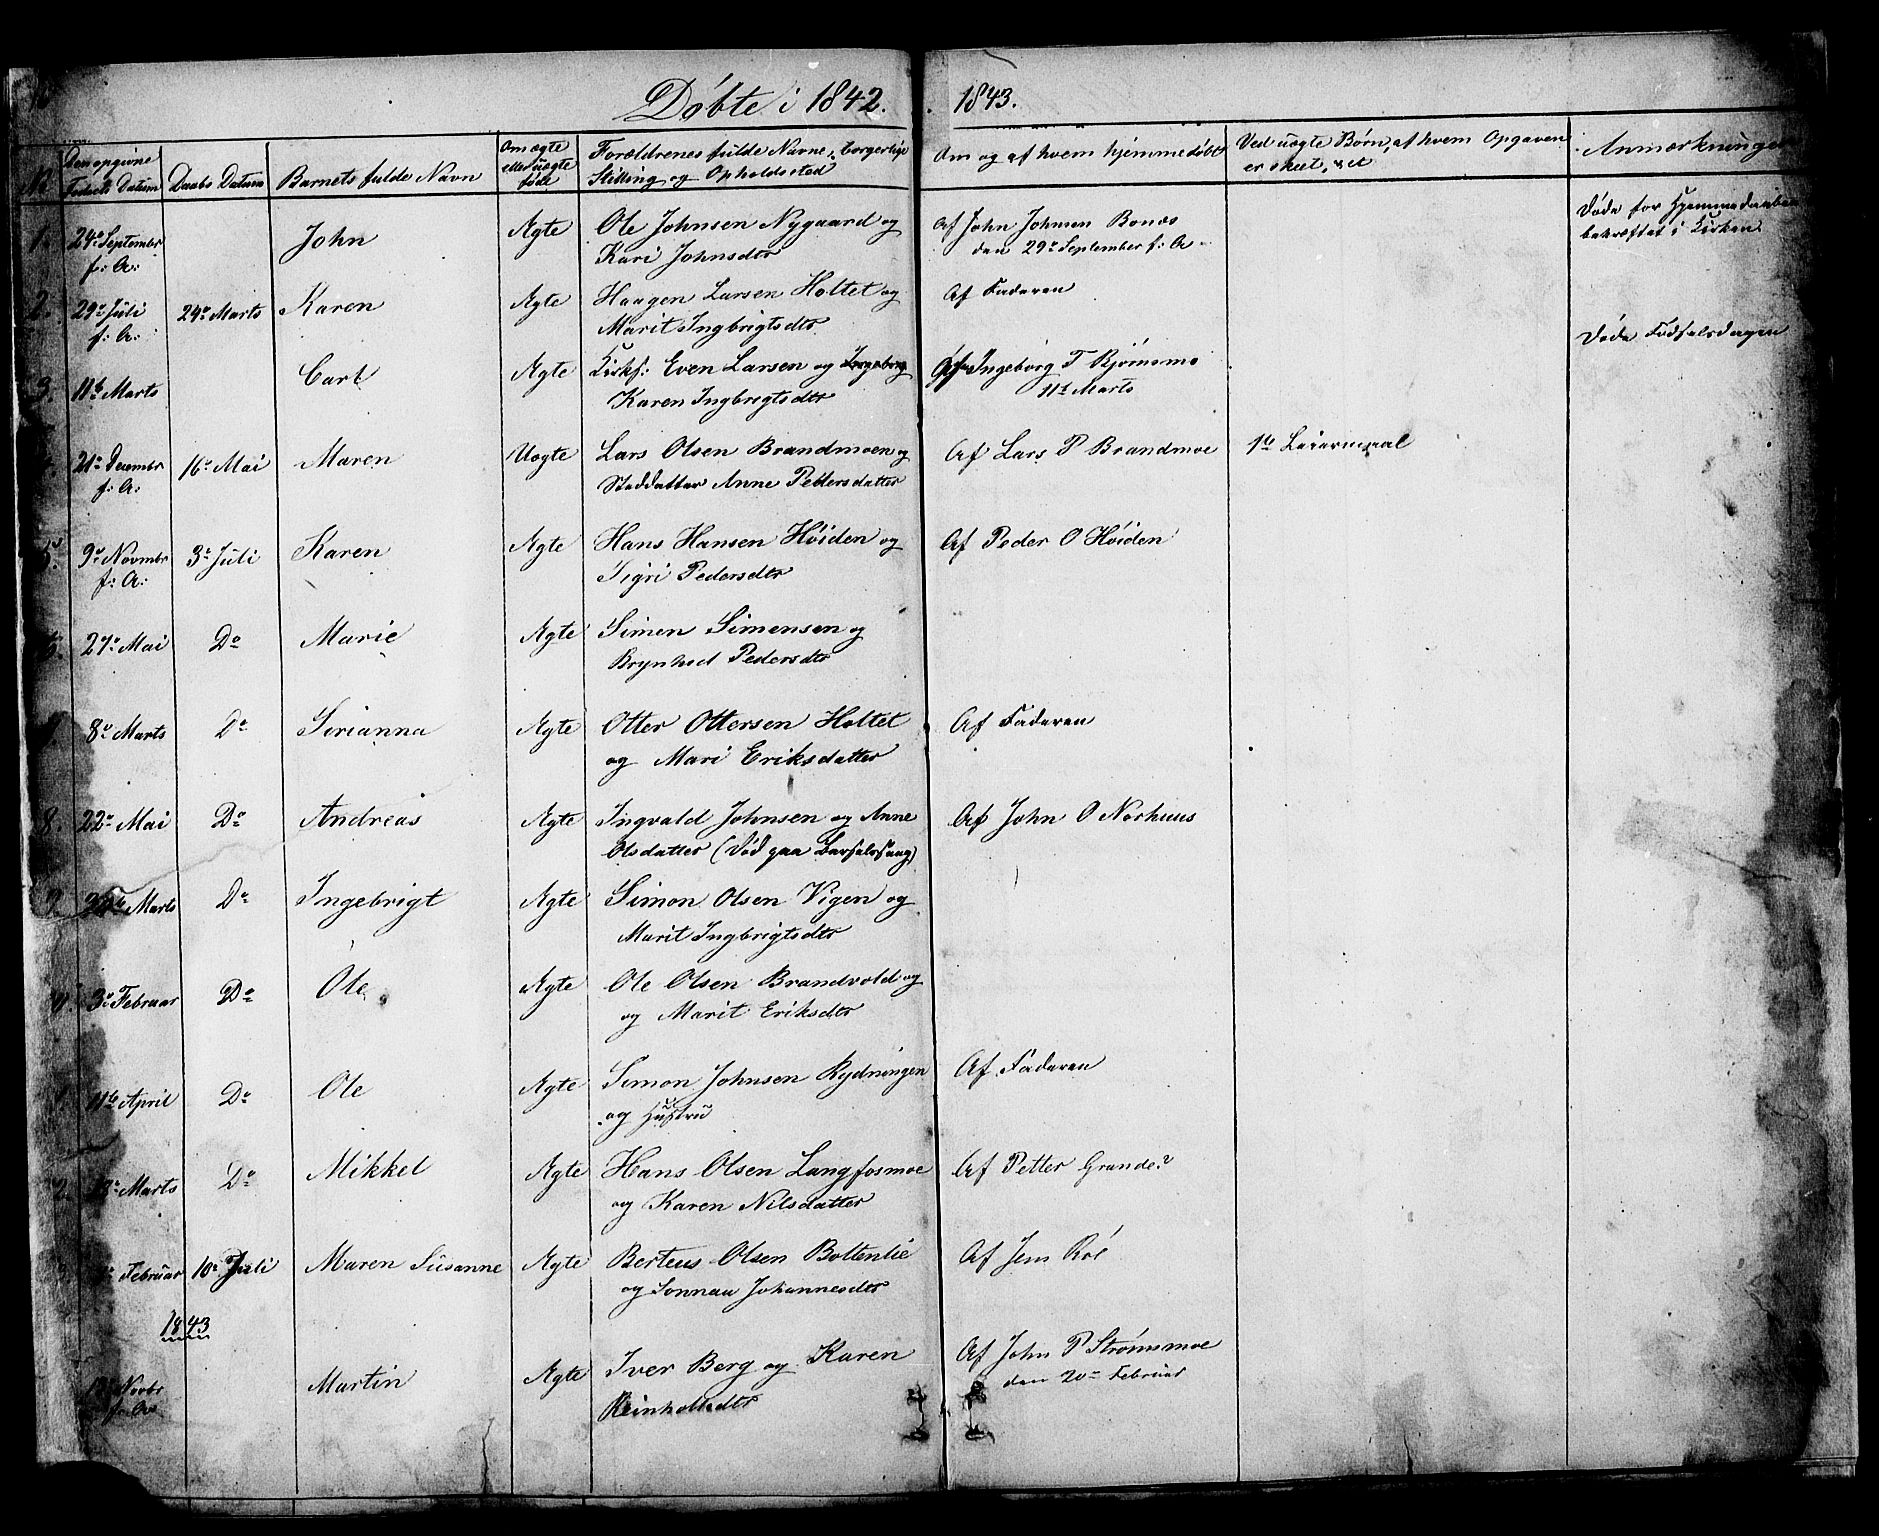 Döbte i 1842. 1843.
N. Den opgivne Fødsels Datum Daabs Datum Barnets fulde Navn Om ægte eller uægteføde Forældrenes fulde Navne, borgerlige Stilling og Opholdssted Om og af hvem hjemmedøbt Ved uægte Børn, af hvem Opgaven er skeet, &ct Anmærkninger
1. 24de Septembr John Ægte Ole Johnsen Nygaard og Af John Johnsen Bonæs Døde før Hjemmedaaben
f: A: Kari Johnsdtr den 29de September f: A. bekræftet i Kirken
2. 29de Juli 24de Marts Karen Ægte Haagen Larsen Holtet og Af Faderen
f: A: Marit Ingbrigtsdtr
3. 11te Marts Carl Ægte Kirks: Even Larsen og Ingeborg Af Ingeborg T Bjørnsmo Døde Fødselsdagen
Karen Ingbrigtsdtr 11te Marts
21de Decembr 16de Mai Maren Uægte Lars Olsen Brandmoen og Af Lars P Brandmoe 1te Leiermaal
f: A: Steddatter Anne Pedersdatter
5. 9de Novmbr 3de Juli Karen Ægte Hans Hansen Høiden og Af Peder O Høiden
f: A: Sigri Pedersdtr
27de Mai Do Marie Ægte Simen Simensen og
Brynhed Pedersdtr
8de Marts Do Sirianna Ægte Otter Ottersen Holtet Af Faderen
og Mari Eriksdatter
8. 22de Mai Do Andreas Ægte Ingvald Johnsen og Anne Af John O Norhuus
Olsdatter (Død paa Barselseng)
9. Marts Do Ingebrigt Ægte Simon Olsen Vigen og
Marit Ingbrigtsdtr
3de Februar Do Ole Ægte Ole Olsen Brandvold og
og Marit Eriksdtr
11te April Do Ole Ægte Simon Johnsen Rydningen Af Faderen
og Hustru
Marts Do Mikkel Ægte Hans Olsen Langfosmoe Af Petter Grande?
og Karen Nilsdatter
Februar 10de Juli Maren Susanne Ægte Berteus Olsen Boltenlie Af Jens Roe
og Johannesdtr
1843
Novbr Martin Ægte Iver Berg og Karen Af John P Strømsmoe
f: A: Reinholtsdtr den 20de Februar